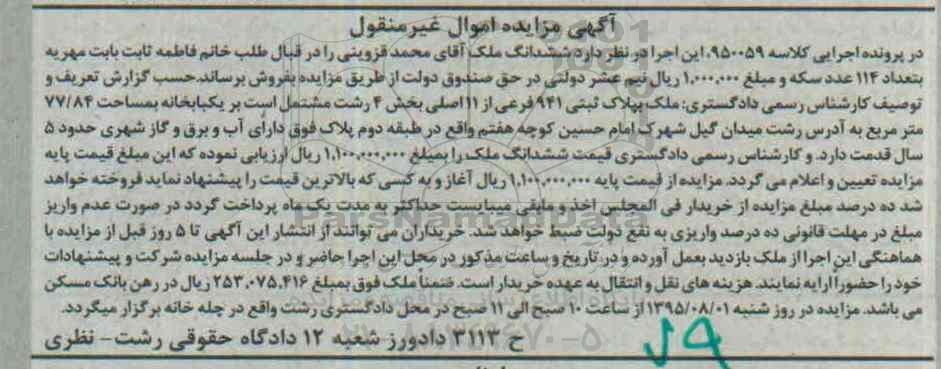 آگهی مزایده اموال غیرمنقول
در پرونده اجرایی کلاسه ۹۵۰۰۵۹، این اجرا در نظر دارد ششدانگ ملک آقای محمد قزوینی را در قبال طلب خانم فاطمه ثابت بابت مهریه
بتعداد ۱۱۴ عدد سکه و مبلغ ۱,۰۰۰,۰۰۰ ریال نیم عشر دولتی در حق صندوق دولت از طریق مزایده بفروش برساند. حسب گزارش تعریف و
توصیف کارشناس رسمی دادگستری: ملک پلاک ثبتی ۹۴۱ فرعی از ۱۱ اصلی بخش ۴ رشت مشتمل است بر یکبابخانه بمساحت ۷۷/۸۴
متر مربع به آدرس رشت میدان گیل شهرک امام حسین کوچه هفتم واقع در طبقه دوم پلاک فوق دارای آب و برق و گاز شهری حدود ۵
سال قدمت دارد. و کارشناس رسمی دادگستری قیمت ششدانگ ملک را بمبلغ ۱,۱۰۰,۰۰۰,۰۰۰ ریال ارزیابی نموده که این مبلغ قیمت پایه
مزایده تعیین و اعلام می گردد. مزایده از قیمت پایه ۱,۱۰۰,۰۰۰,۰۰۰ ریال آغاز و به کسی که بالاترین قیمت را پیشنهاد نماید فروخته خواهد
شد ده درصد مبلغ مزایده از خریدار فی المجلس اخذ و مابقی میبایست حداکثر به مدت یک ماه پرداخت گردد در صورت عدم واریز
مبلغ در مهلت قانونی ده درصد واریزی به نفع دولت ضبط خواهد شد. خریداران می توانند از انتشار این آگهی تا ۵ روز قبل از مزایده با
هماهنگی این اجرا از ملک بازدید بعمل آورده و در تاریخ و ساعت مذکور در محل این اجرا حاضر و در جلسه مزایده شرکت و پیشنهادات
خود را حضوراً ارایه نمایند. هزینه های نقل و انتقال به عهده خریدار است. ضمناً ملک فوق بمبلغ ۲۵۳,۰۷۵,۴۱۶ ریال در رهن بانک مسکن
می باشد. مزایده در روز شنبه ۱۳۹۵/۰۸/۰۱ از ساعت ۱۰ صبح الی ۱۱ صبح در محل دادگستری رشت واقع در چله خانه برگزار میگردد.
ح ۳۱۱۳ دادورز شعبه ۱۲ دادگاه حقوقی رشت - نظری
ParsNamadData